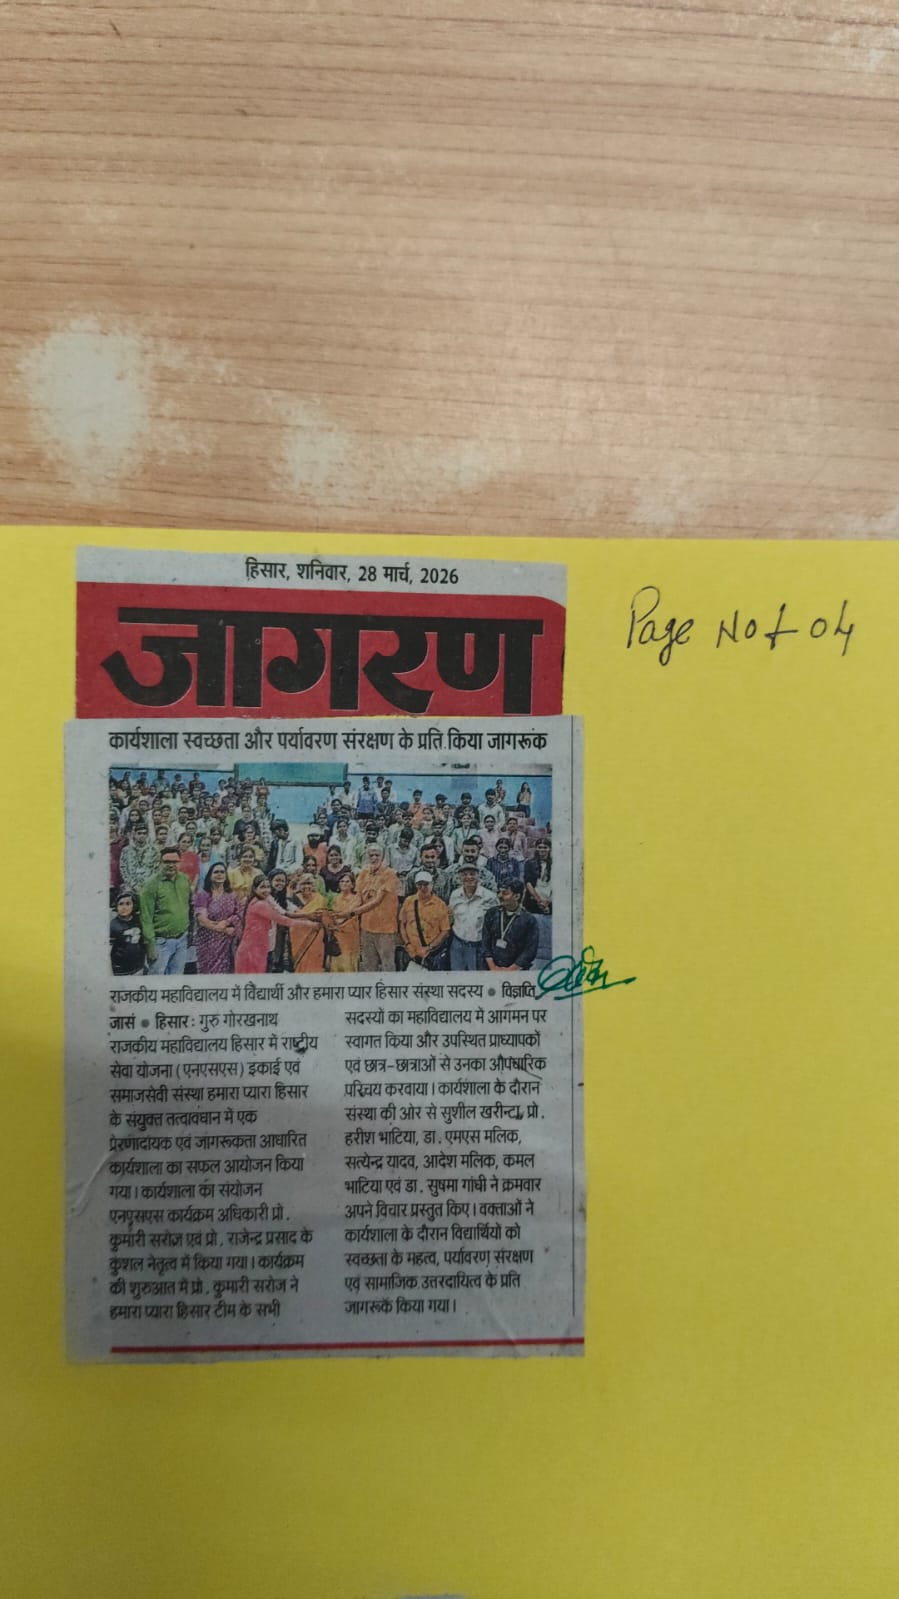 हिसार, शनिवार, 28 मार्च, 2026
जागरण
Page No 04
कार्यशाला स्वच्छता और पर्यावरण संरक्षण के प्रति किया जागरूक
राजकीय महाविद्यालय में विद्यार्थी और हमारा प्यार हिसार संस्था सदस्य ● विज्ञप्ति
जासं ● हिसार: गुरु गोरखनाथ
राजकीय महाविद्यालय हिसार में राष्ट्रीय
सेवा योजना (एनएसएस) इकाई एवं
समाजसेवी संस्था हमारा प्यारा हिसार
के संयुक्त तत्वावधान में एक
प्रेरणादायक एवं जागरूकता आधारित
कार्यशाला का सफल आयोजन किया
गया। कार्यशाला का संयोजन
एनएसएस कार्यक्रम अधिकारी प्रो.
कुमारी सरोज एवं प्रो. राजेन्द्र प्रसाद के
कुशल नेतृत्व में किया गया। कार्यक्रम
की शुरुआत में प्रो. कुमारी सरोज ने
हमारा प्यारा हिसार टीम के सभी
सदस्यों का महाविद्यालय में आगमन पर
स्वागत किया और उपस्थित प्राध्यापकों
एवं छात्र-छात्राओं से उनका औपचारिक
परिचय करवाया। कार्यशाला के दौरान
संस्था की ओर से सुशील खरीन्टा, प्रो.
हरीश भाटिया, डा. एमएस मलिक,
सत्येन्द्र यादव, आदेश मलिक, कमल
भाटिया एवं डा. सुषमा गांधी ने क्रमवार
अपने विचार प्रस्तुत किए। वक्ताओं ने
कार्यशाला के दौरान विद्यार्थियों को
स्वच्छता के महत्व, पर्यावरण संरक्षण
एवं सामाजिक उत्तरदायित्व के प्रति
जागरूक किया गया।